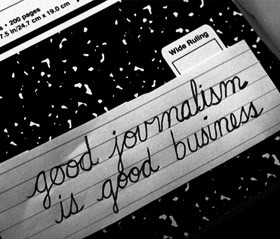 • 200 pages
7.5 in/24.7 cm x 19.0 cm
Wide Ruling
good journalism
is good business